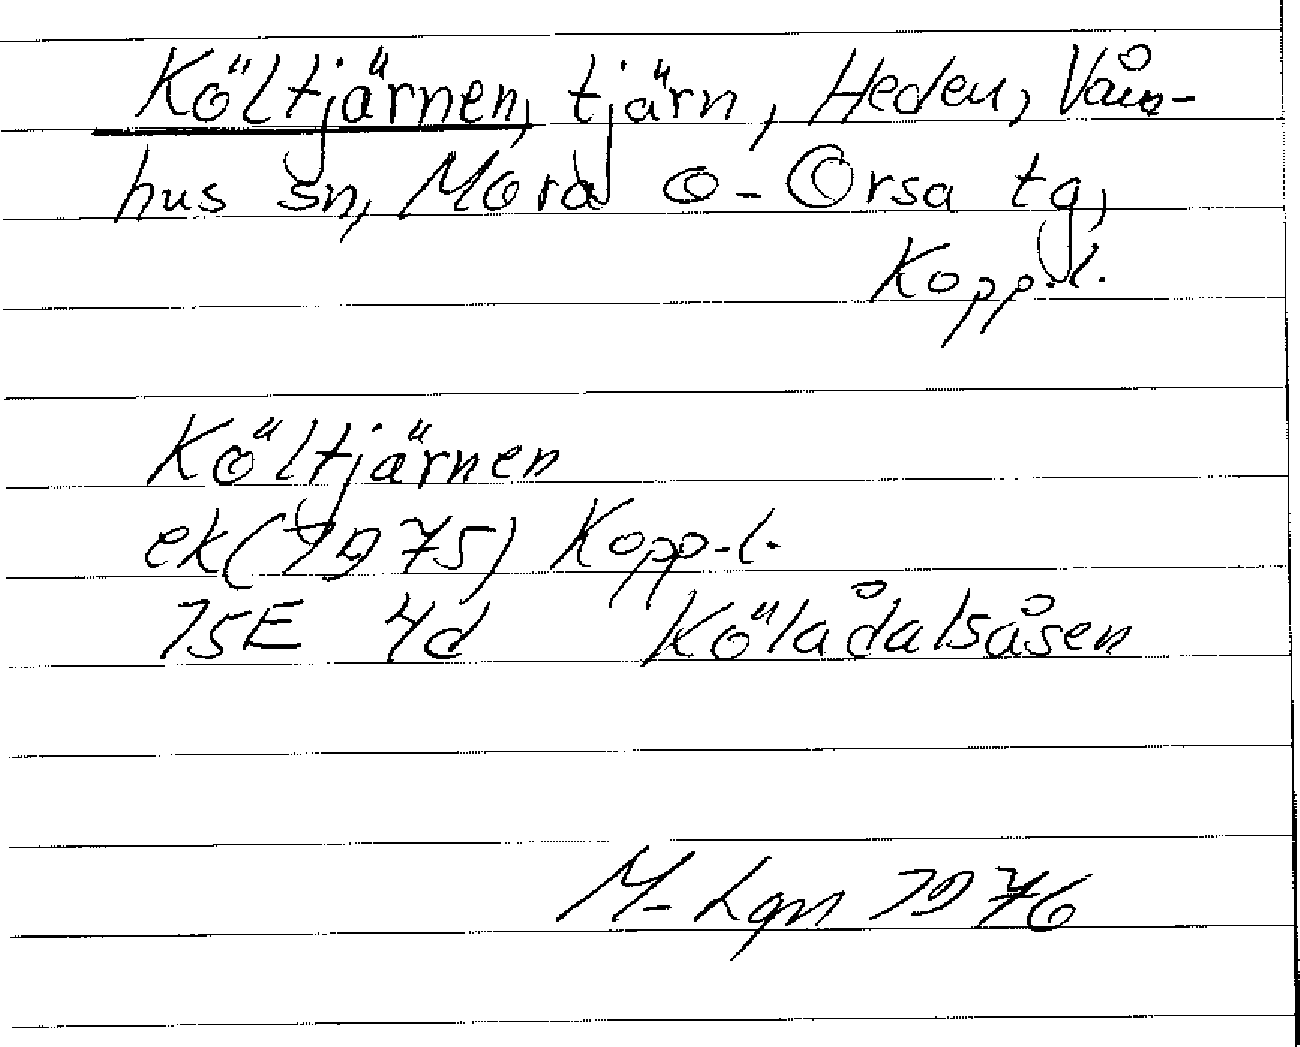 Költjärnen, tjärn, Heden, Våm-
hus sn, Mora o- Orsa tg,
Kopp.l.
Költjärnen
ek(1975) Kopp.l.
15E 4d Kölådalsåsen
M-Lgn 1976